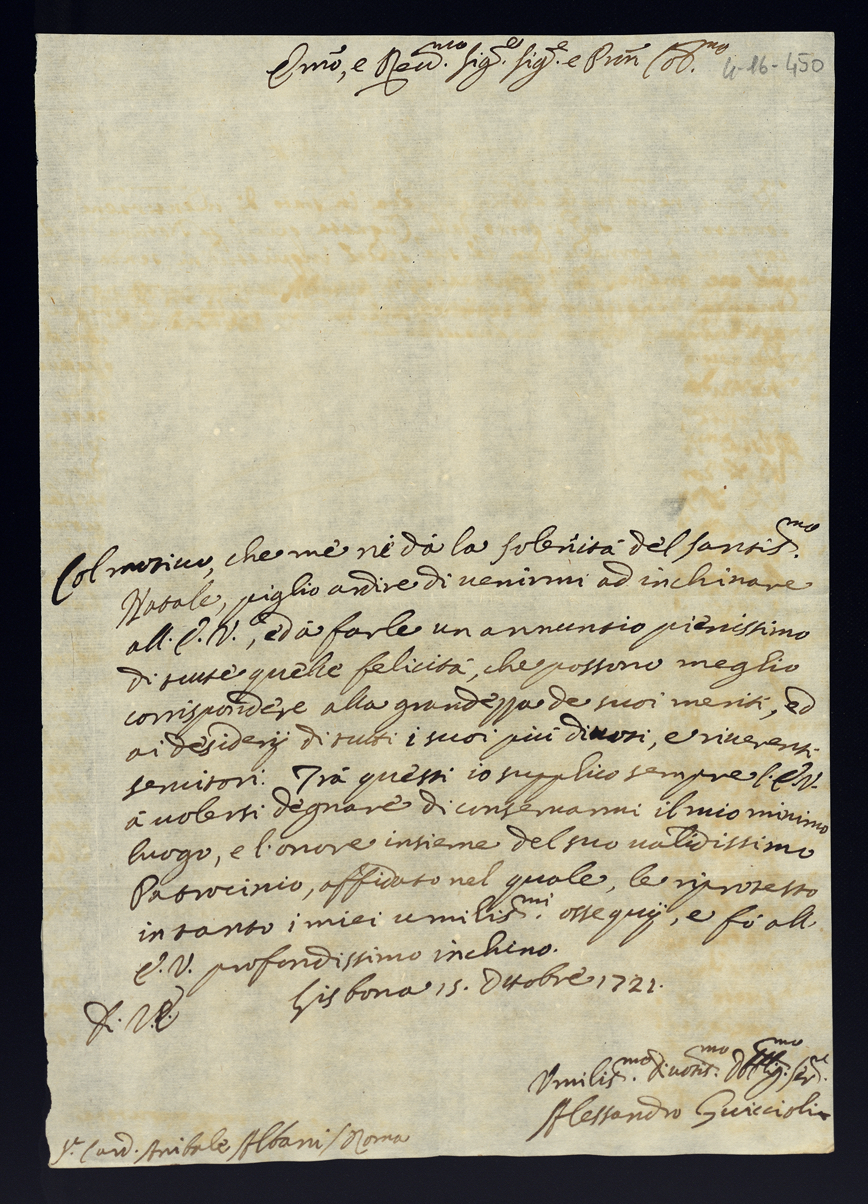 Emo, e Reumo. Sige. Sige. e Prñ Colmo.
4-16-450
Col motivo, che me ne dà la solenità del Santismo.
Natale, piglio ardire di uenirmi ad inchinare
all. E. V., ed à farle un annuntio pienissimo
di tutte quelle felicità, che possono meglio
corrispondere alla grandezza de suoi meriti, ed
ai desiderij di tutti i suoi più diuoti, e riuerenti
seruitori. Trà questi io supplico sempre l. E.V.
à uolersi degnare di conseruarmi il mio minimo
luogo, e l'onore insieme del suo ualidissimo
Patrocinio, affidato nel quale, le riprotesto
in tanto i miei umilismi. ossequij, e fò all.
E. V. profondissimo inchino.
Lisbona 15. Ottobre 1721.
Di V.E
Umilismo. diuotismo. obligmo. sere.
Alessandro Guiccioli
Sr. Card. Anibale Albani / Roma